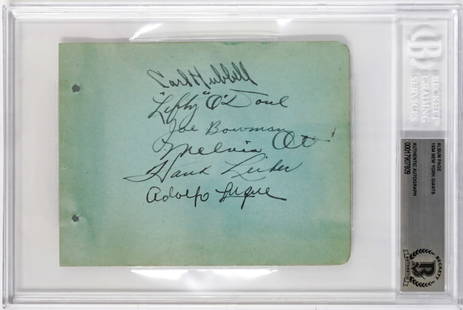 Carl Hubbell
"Lefty" O'Doul
Joe Bowman
Melvin Ott
Hank Leiber
Adolfo Luque
BECKETT
GRADING
SERVICES
ALBUM PAGE
1934 NEW YORK GIANTS
AUTHENTIC AUTOGRAPH
BECKETT